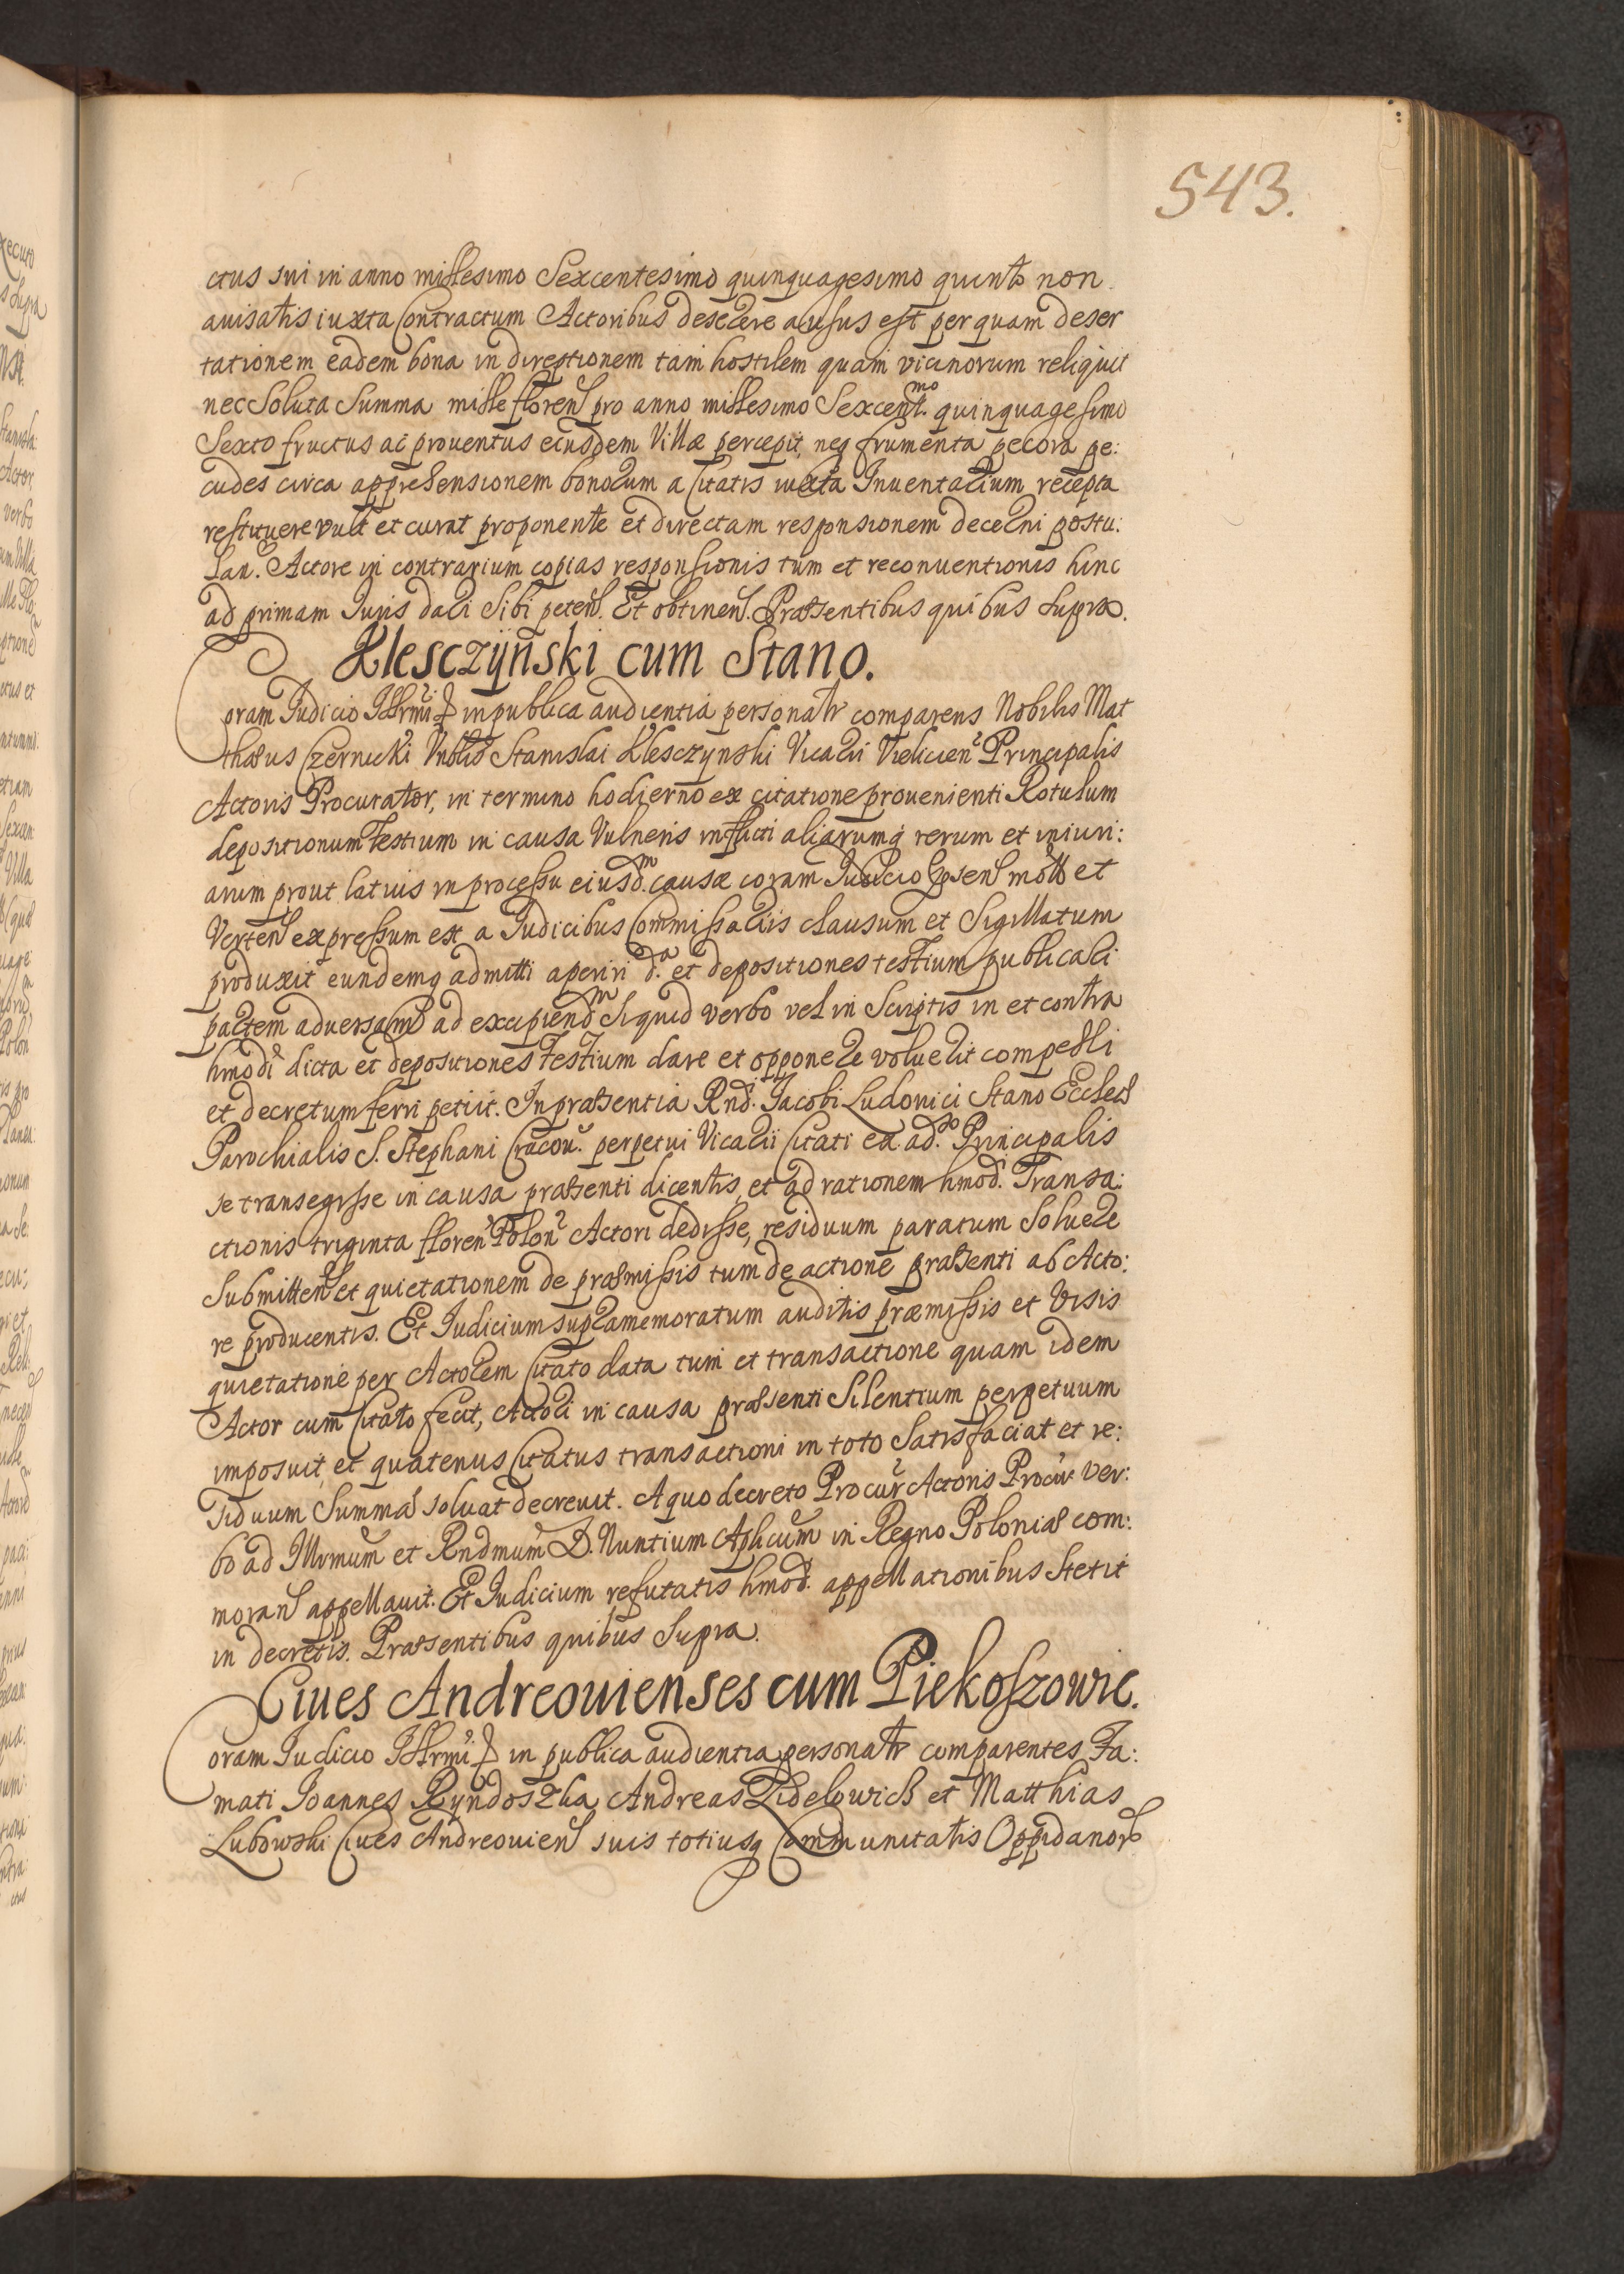 543.
ctus sui in anno millesimo Sexcentesimo quinquagesimo quinto non
auisatis iuxta Contractum Actoribus deserere ausus est per quam deser
tationem eadem bona in direptionem tam hostilem quam vicinorum reliquit
nec Soluta Summa mille floren pro anno millesimo Sexcent.mo quinquagesimo
Sexto fructus ac prouentus eiusdem Villæ percepit, neq frumenta pecora pe:
cudes circa apprehensionem bonorum a Citatis iuxta Inuentarium recepta
restituere vult et curat proponente et directam responsionem decerni postu:
lan. Actore in contrarium copias responsionis tum et reconuentionis hinc
ad primam Juris dari Sibi peten. Et obtinen. Præsentibus quibus Supra.
Klesczÿnski cum Stano.
Coram Judicio Illrmi in publica audientia personatr comparens Nobilis Mat
thæus Czernicki Vnblis Stanislai Klesczynski Vicarii Vielicien Principalis
Actoris Procurator, in termino hodierno ex citatione prouenienti Rotulum
depositionum Testium in causa Vulneris inflicti aliarumq rerum et iniuri:
arum prout latius in processu eiusd.m causæ coram Judicio Ipsen mott et
Verten expressum est a Judicibus Commissariis clausum et Sigillatum
produxit eundemq admitti aperiri d.a et depositiones testium publicari
partem aduersam ad excipiend.m Siquid verbo vel in Scriptis in et contra
hmodi dicta et depositiones Testium dare et opponere voluerit compelli
et decretum ferri petiit. In præsentia Rnd. Jacobi Ludouici Stano Eccles
Parochialis S. Stephani Cracou. perpetui Vicarii Citati ex ad.so Principalis
se transegisse in causa præsenti dicentis, et ad rationem hmod. Transa:
ctionis triginta floren Polon Actori dedisse, residuum paratum Soluere
Submitten et quietationem de præmissis tum de actione præsenti ab Acto:
re producentis. Et Judicium supramemoratum auditis præmissis et Visis
quietatione per Actorem Citato data tum et transactione quam idem
Actor cum Citato fecit, Actori in causa præsenti Silentium perpetuum
imposuit, et quatenus Citatus transactioni in toto Satisfaciat et re:
siduum Summæ soluat decreuit. A quo decreto Procur Actoris Procur ver:
bo ad Illrmum et Rndmum D. Nuntium Aplicum in Regno Poloniæ com:
moran appellauit. Et Judicium refutatis hmod. appellationibus Stetit
in decretis. Præsentibus quibus Supra.
Ciues Andreouienses cum Piekoszowic.
Coram Judicio Illrmi in publica audientia personatr comparentes Fa:
mati Joannes Ryndoszka Andreas Zidelowicz et Matthias
Lubowski Ciues Andreouien suis totiusq Communitatis Oppidanor